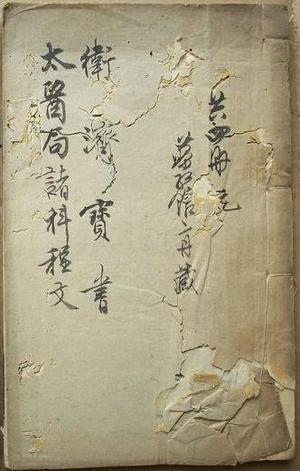 共四冊
藏
衛濟寶書
太醫局諸科程文